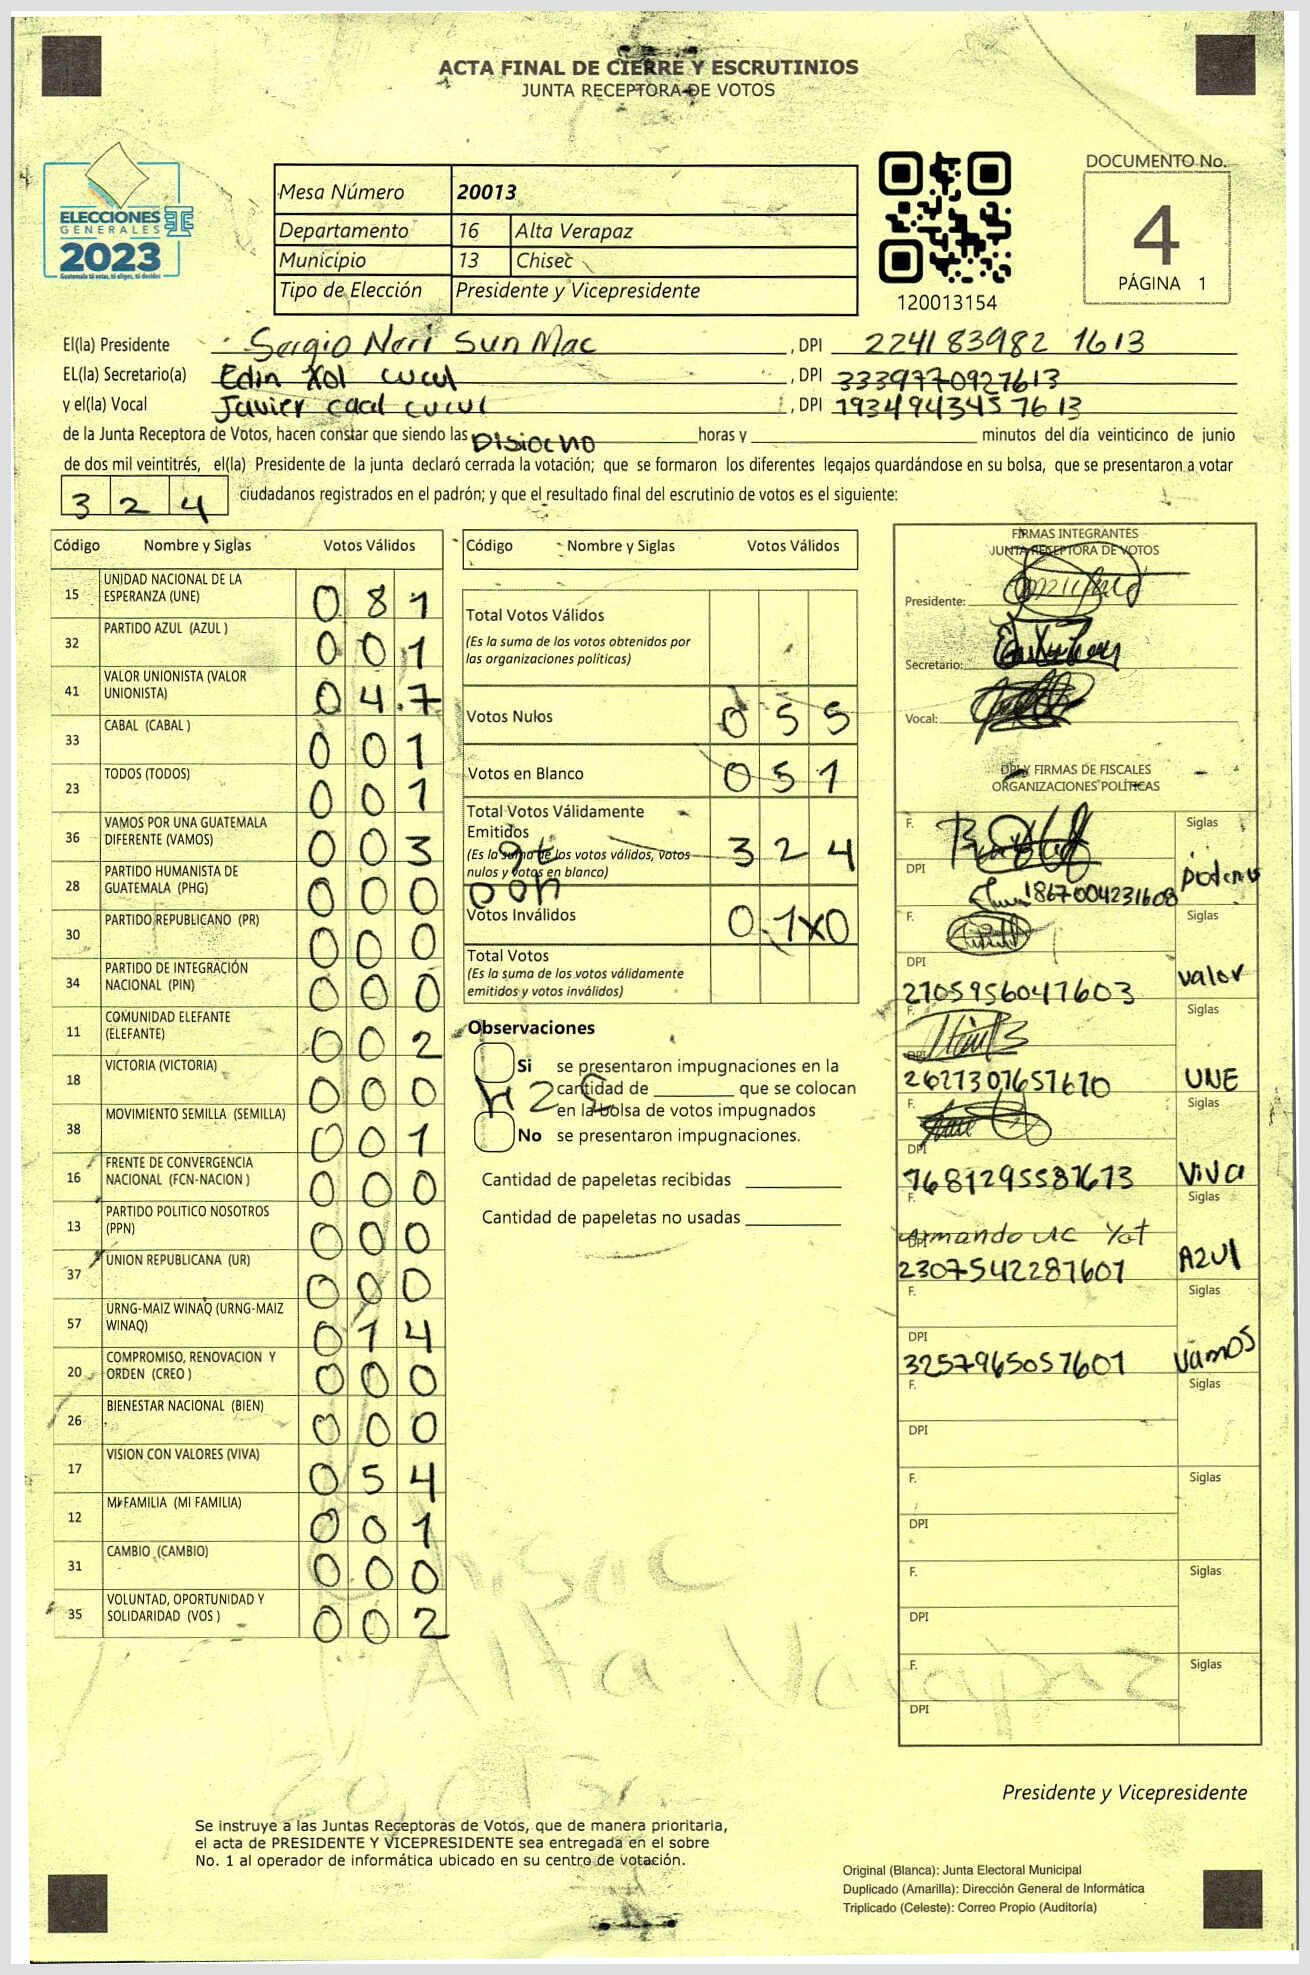 ACTA FINAL DE CIERRE Y ESCRUTINIOS
JUNTA RECEPTORA DE VOTOS
ELECCIONES
GENERALES
2023
Guatemala tú votas, tú eliges, tú decides
Mesa Número 20013
Departamento 16 Alta Verapaz
Municipio 13 Chisec
Tipo de Elección Presidente y Vicepresidente
120013154
DOCUMENTO No.
4
PÁGINA 1
El(la) Presidente Sergio Neri Sun Mac , DPI 224183982 1613
EL(la) Secretario(a) Edin Xol cucul , DPI 3339770921613
y el(la) Vocal Javier caal cucul , DPI 1934943457613
de la Junta Receptora de Votos, hacen constar que siendo las Disiocho horas y minutos del día veinticinco de junio
de dos mil veintitrés, el(la) Presidente de la junta declaró cerrada la votación; que se formaron los diferentes legajos quardándose en su bolsa, que se presentaron a votar
3 2 4 ciudadanos registrados en el padrón; y que el resultado final del escrutinio de votos es el siguiente:
Código Nombre y Siglas Votos Válidos
15 UNIDAD NACIONAL DE LA ESPERANZA (UNE) 0 8 1
32 PARTIDO AZUL (AZUL ) 0 0 1
41 VALOR UNIONISTA (VALOR UNIONISTA) 0 4 7
33 CABAL (CABAL ) 0 0 1
23 TODOS (TODOS) 0 0 1
36 VAMOS POR UNA GUATEMALA DIFERENTE (VAMOS) 0 0 3
28 PARTIDO HUMANISTA DE GUATEMALA (PHG) 0 0 0
30 PARTIDO REPUBLICANO (PR) 0 0 0
34 PARTIDO DE INTEGRACIÓN NACIONAL (PIN) 0 0 0
11 COMUNIDAD ELEFANTE (ELEFANTE) 0 0 2
18 VICTORIA (VICTORIA) 0 0 0
38 MOVIMIENTO SEMILLA (SEMILLA) 0 0 1
16 FRENTE DE CONVERGENCIA NACIONAL (FCN-NACION ) 0 0 0
13 PARTIDO POLITICO NOSOTROS (PPN) 0 0 0
37 UNION REPUBLICANA (UR) 0 0 0
57 URNG-MAIZ WINAQ (URNG-MAIZ WINAQ) 0 1 4
20 COMPROMISO, RENOVACION Y ORDEN (CREO ) 0 0 0
26 BIENESTAR NACIONAL (BIEN) 0 0 0
17 VISION CON VALORES (VIVA) 0 5 4
12 MI FAMILIA (MI FAMILIA) 0 0 1
31 CAMBIO (CAMBIO) 0 0 0
35 VOLUNTAD, OPORTUNIDAD Y SOLIDARIDAD (VOS ) 0 0 2
Código Nombre y Siglas Votos Válidos
Total Votos Válidos
(Es la suma de los votos obtenidos por
las organizaciones políticas)
Votos Nulos 0 5 5
Votos en Blanco 0 5 1
Total Votos Válidamente
Emitidos 3 2 4
(Es la suma de los votos válidos, votos
nulos y votos en blanco)
Votos Inválidos 0 1x0
Total Votos
(Es la suma de los votos válidamente
emitidos y votos inválidos)
Observaciones
Si se presentaron impugnaciones en la
cantidad de que se colocan
en la bolsa de votos impugnados
No se presentaron impugnaciones.
Cantidad de papeletas recibidas
Cantidad de papeletas no usadas
FIRMAS INTEGRANTES
JUNTA RECEPTORA DE VOTOS
Presidente:
Secretario:
Vocal:
DPI Y FIRMAS DE FISCALES
ORGANIZACIONES POLÍTICAS
F. Siglas
DPI 1867004231608
F. Siglas
DPI 2705956047603 valor
F. Siglas
DPI 2627307657610 UNE
F. Siglas
DPI 7681295587613 VIVA
F. Siglas
Armando Yat
DPI 2307542287601 AZUl
F. Siglas
DPI 3257965057601 vamos
F. Siglas
DPI
F. Siglas
DPI
F. Siglas
DPI
F. Siglas
DPI
Alta Verapaz
Presidente y Vicepresidente
Se instruye a las Juntas Receptoras de Votos, que de manera prioritaria,
el acta de PRESIDENTE Y VICEPRESIDENTE sea entregada en el sobre
No. 1 al operador de informática ubicado en su centro de votación.
Original (Blanca): Junta Electoral Municipal
Duplicado (Amarilla): Dirección General de Informática
Triplicado (Celeste): Correo Propio (Auditoría)